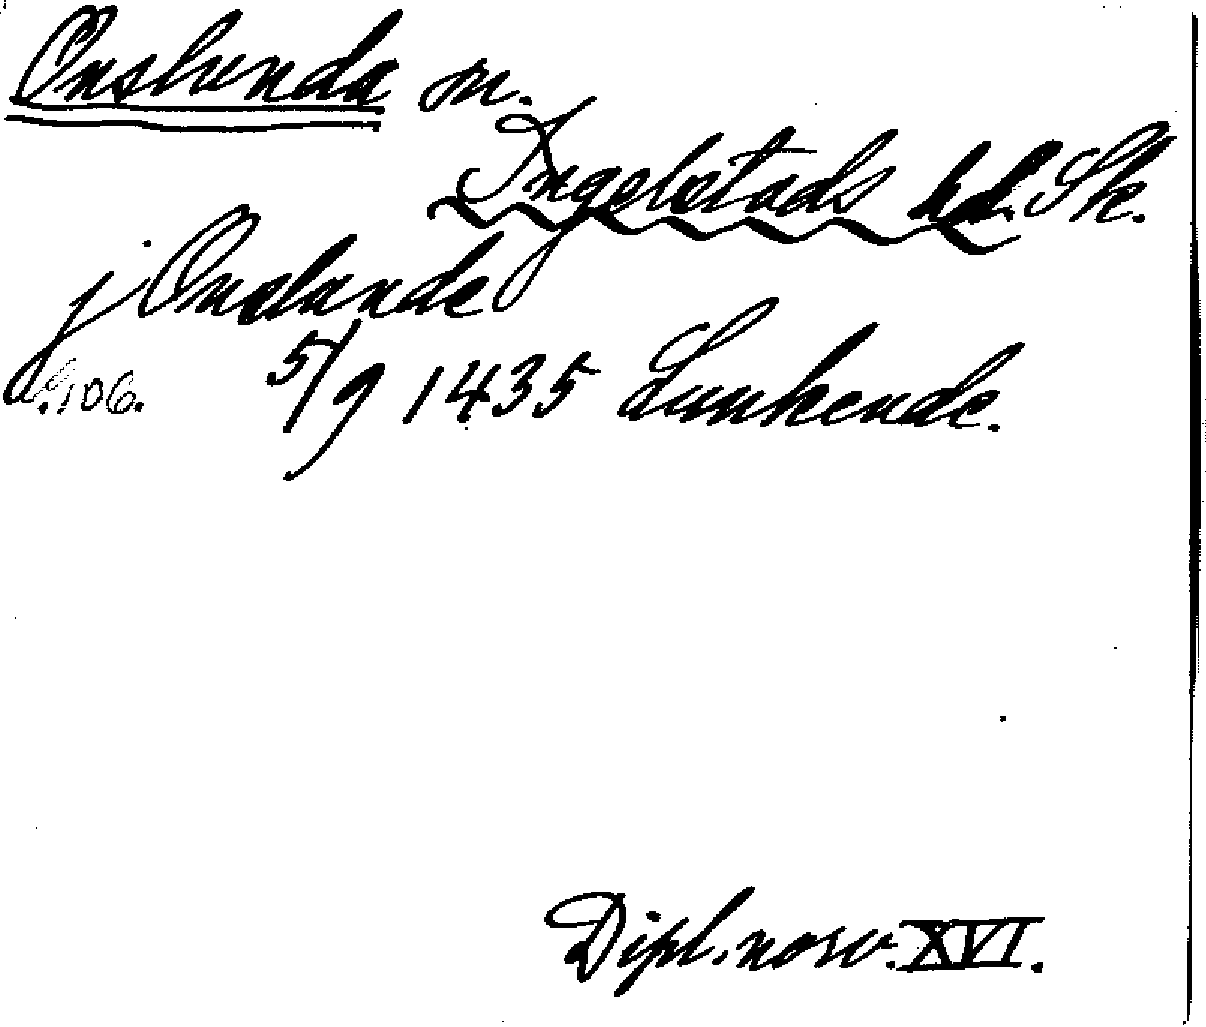 Onslunda sn.
Ingelstads hd. Sk.
j Onslunde
s. 106. 5/9 1435 Lunkende.
Dipl. norv. XVI.